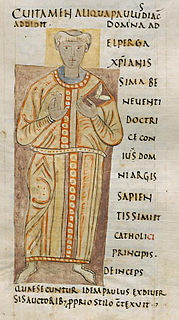 CUI TAMEN ALIQUA PAULUS DIAC
ADDIDIT
DOMNA AD
ELPERGA
XPIANIS
SIMA BE
NEVENTI
DOCTRI
CE CON
IUS DOM
NI ARGIS
SAPIEN
TISSIMI ET
CATHOLICI
PRINCIPIS.
DEINCEPS
QUAE SECUNTUR IDEM PAULUS EX DIVER
SIS AUCTORIB; PPRIO STILO CTEXUIT